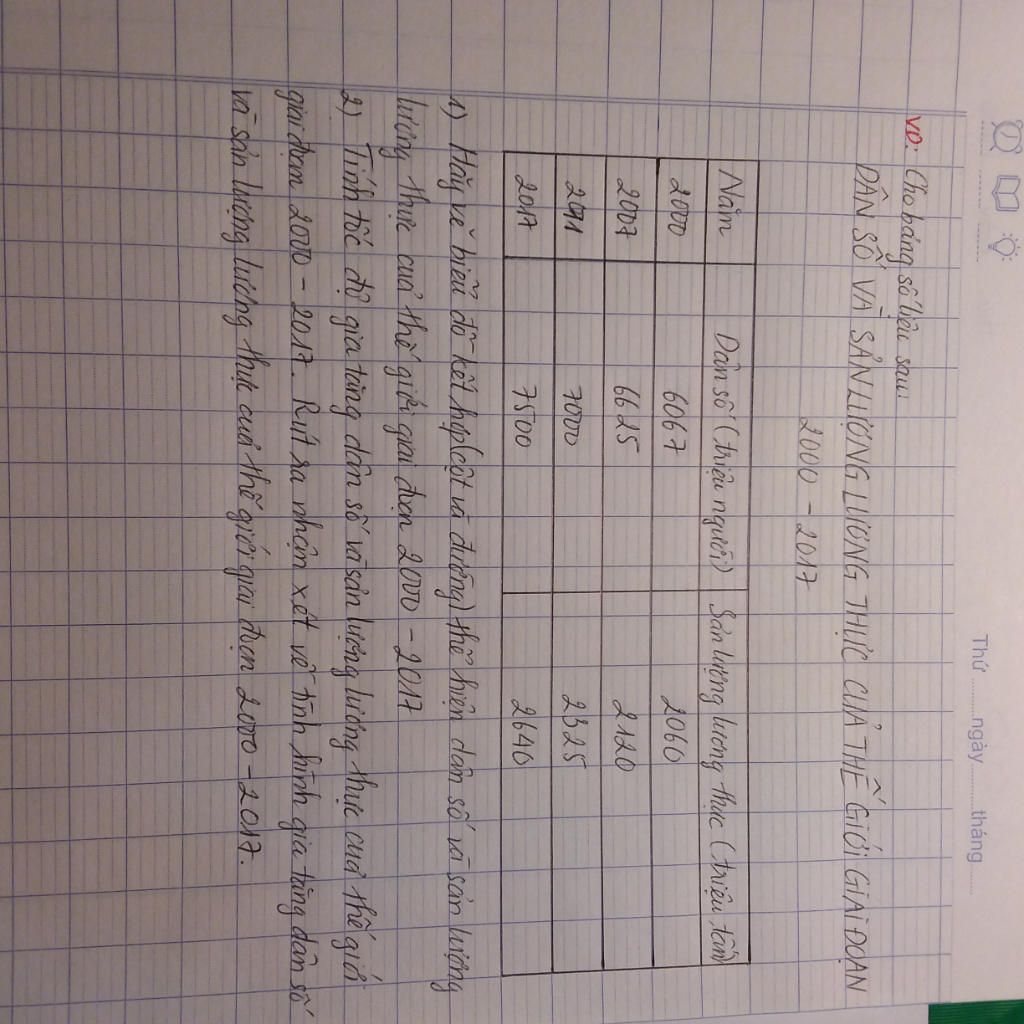 Thứ ......... ngày ......... tháng .........
VD: Cho bảng số liệu sau:
DÂN SỐ VÀ SẢN LƯỢNG LƯƠNG THỰC CỦA THẾ GIỚI GIAI ĐOẠN
2000 - 2017
Năm Dân số (triệu người) Sản lượng lương thực (triệu tấn)
2000 6067 2060
2007 6625 2120
2011 7000 2325
2017 7500 2640
1) Hãy vẽ biểu đồ kết hợp (cột và đường) thể hiện dân số và sản lượng
lương thực của thế giới giai đoạn 2000 - 2017
2) Tính tốc độ gia tăng dân số và sản lượng lương thực của thế giới
giai đoạn 2000 - 2017. Rút ra nhận xét về tình hình gia tăng dân số
và sản lượng lương thực của thế giới giai đoạn 2000 - 2017.